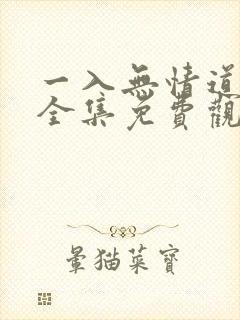 一入無情道
全集免費觀
暈猫菜寶